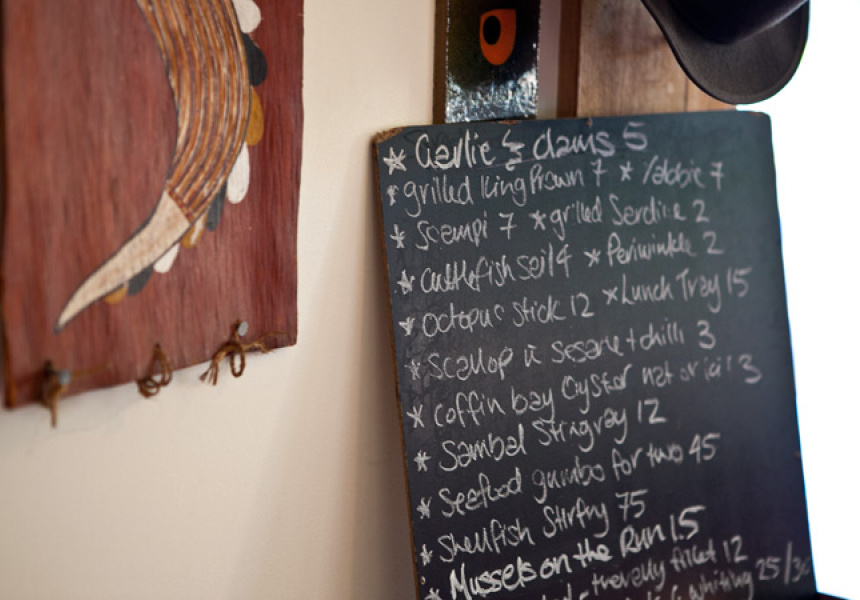 * Garlic & clams 5
* grilled King Prawn 7 * Yabbie 7
* Scampi 7 * grilled Sardine 2
* cuttlefish sail 4 * Periwinkle 2
* octopus stick 12 * Lunch Tray 15
* scallop in sesame + chilli 3
* coffin bay Oyster nat or 3
* Sambal Stingray 12
* Seafood gumbo for two 45
* Shellfish Stirfry 75
* Mussels on the Run 1.5
* - trevally fillet 12
whiting 25/